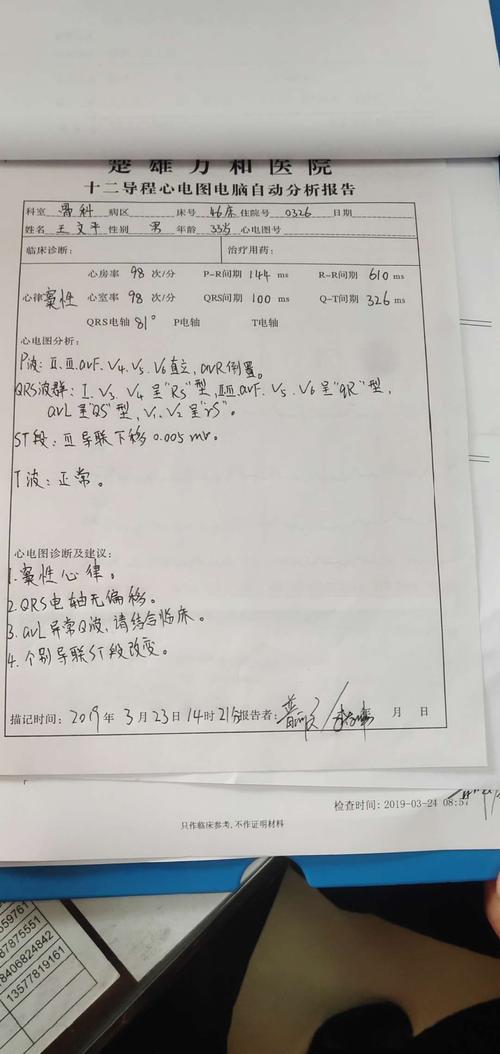 楚雄万和医院
十二导程心电图电脑自动分析报告
科室 骨科 病区 床号 46床 住院号 0326 日期
姓名 王文平 性别 男 年龄 33岁 心电图号
临床诊断: 治疗用药:
心房率 98 次/分 P-R间期 144 ms R-R间期 610 ms
心律 窦性 心室率 98 次/分 QRS间期 100 ms Q-T间期 326 ms
QRS电轴 81° P电轴 T电轴
心电图分析:
P波: II. III. avF. V4. V5. V6 直立, avR 倒置。
QRS波群: I. V3. V4 呈"Rs"型, II III avF. V5. V6 呈"qR"型,
avL 呈"QS"型, V1. V2 呈"rS"。
ST段: III 导联下移 0.005 mv。
T波: 正常。
心电图诊断及建议:
1. 窦性心律。
2. QRS电轴无偏移。
3. avL 异常Q波, 请结合临床。
4. 个别导联ST段改变。
描记时间: 2019 年 3 月 23 日 14 时 21 分 报告者: 年 月 日
检查时间: 2019-03-24 08:57
只作临床参考, 不作证明材料
659761
87875551
8406824842
13577819161